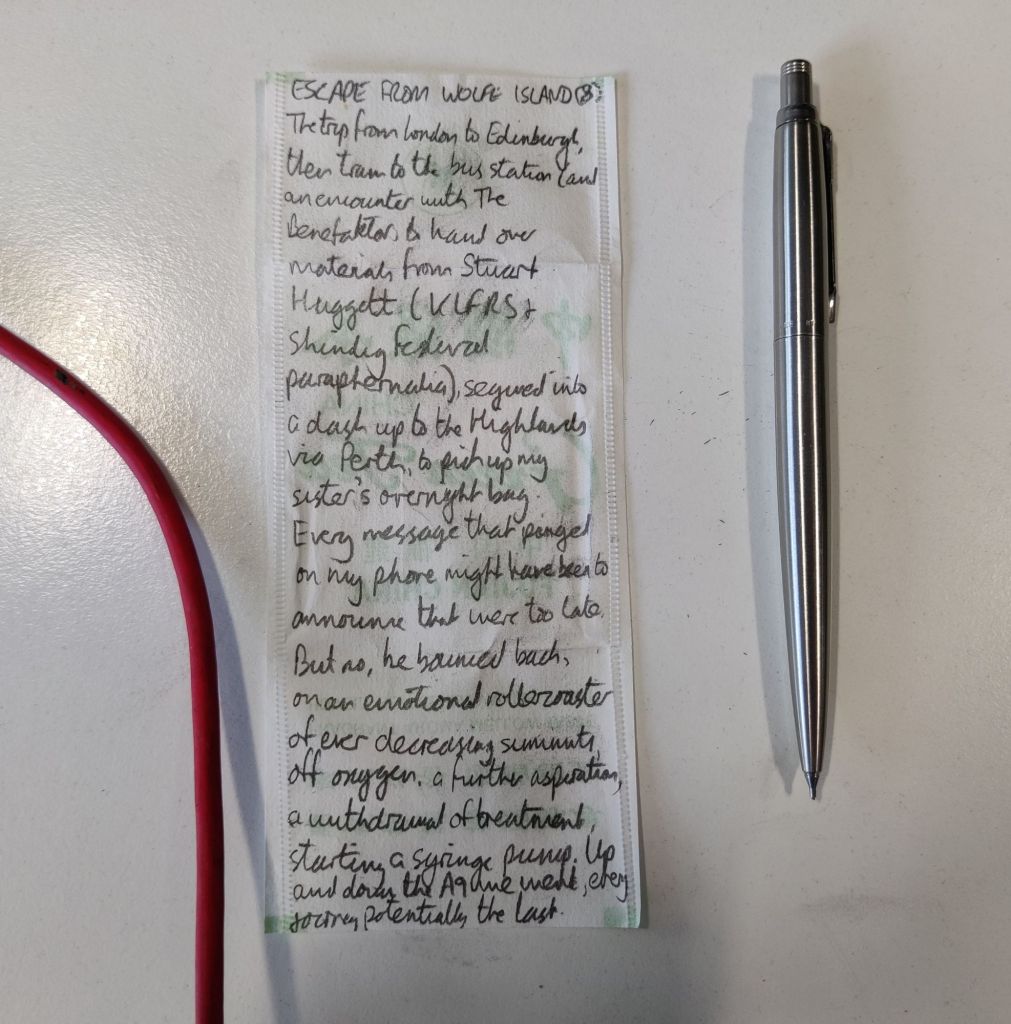 ESCAPE FROM WOLFE ISLAND (8)
The trip from London to Edinburgh,
then tram to the bus station (and
an encounter with The
Benefaktor, to hand over
materials from Stuart
Huggett (KLFRS &
Shindig Federal
paraphernalia), segued into
a dash up to the Highlands
via Perth, to pick up my
sister's overnight bag.
Every message that pinged
on my phone might have been to
announce that were too late.
But no, he bounced back,
on an emotional rollercoaster
of ever decreasing summits,
off oxygen. a further aspiration,
a withdrawal of treatment,
starting a syringe pump. Up
and down the A9 we went, every
journey potentially the last.